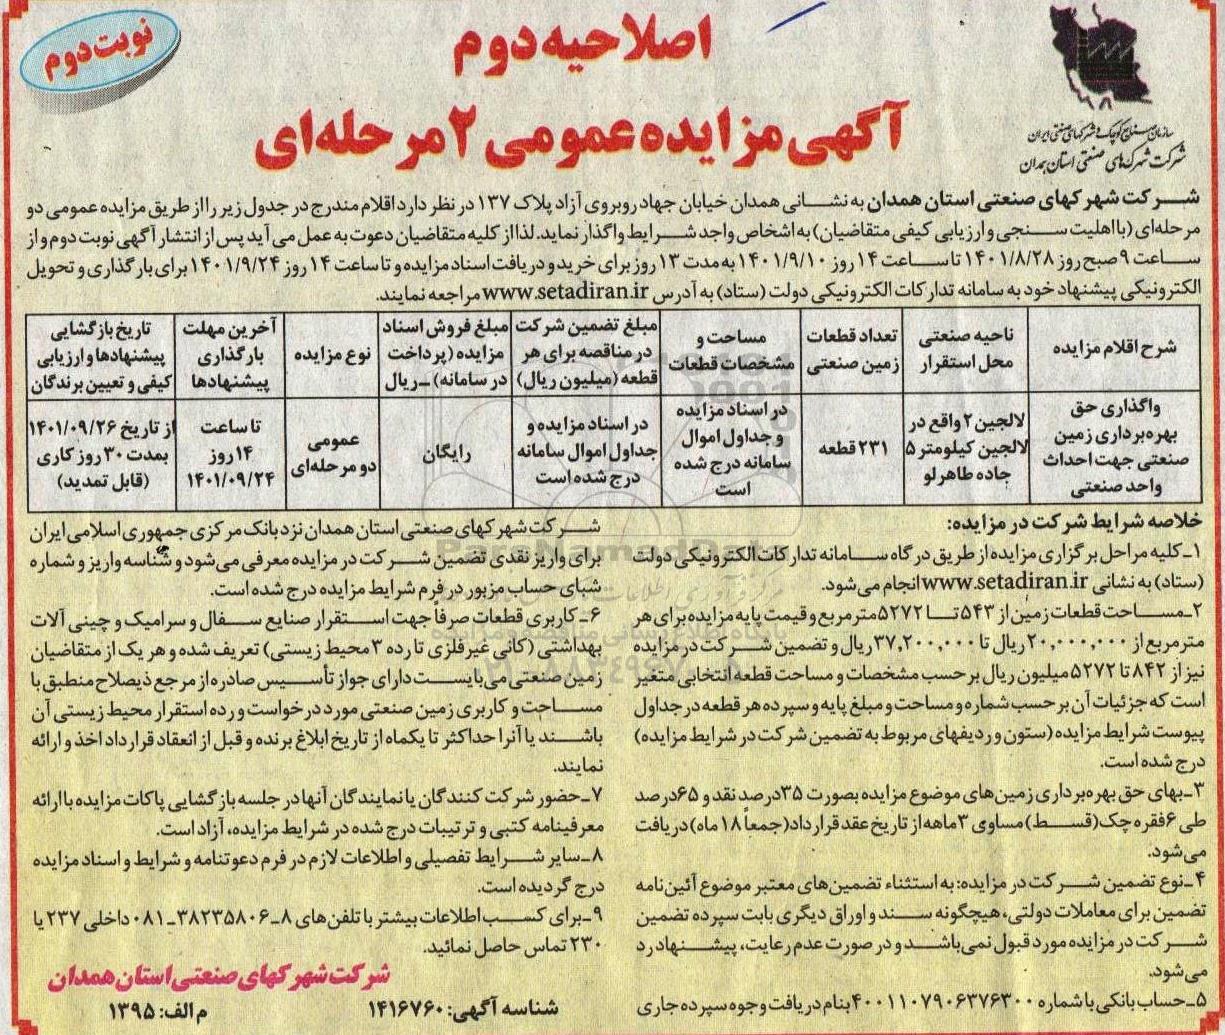 نوبت دوم
اصلاحیه دوم
آگهی مزایده عمومی ۲ مرحله‌ای
سازمان صنایع کوچک و شهرکهای صنعتی ایران
شرکت شهرک‌های صنعتی استان همدان
شرکت شهرکهای صنعتی استان همدان به نشانی همدان خیابان جهاد روبروی آزاد پلاک ۱۳۷ در نظر دارد اقلام مندرج در جدول زیر را از طریق مزایده عمومی دو
مرحله‌ای (با اهلیت سنجی و ارزیابی کیفی متقاضیان) به اشخاص واجد شرایط واگذار نماید. لذا از کلیه متقاضیان دعوت به عمل می آید پس از انتشار آگهی نوبت دوم و از
ساعت ۹ صبح روز ۱۴۰۱/۸/۲۸ تا ساعت ۱۴ روز ۱۴۰۱/۹/۱۰ به مدت ۱۳ روز برای خرید و دریافت اسناد مزایده و تا ساعت ۱۴ روز ۱۴۰۱/۹/۲۴ برای بارگذاری و تحویل
الکترونیکی پیشنهاد خود به سامانه تدارکات الکترونیکی دولت (ستاد) به آدرس www.setadiran.ir مراجعه نمایند.
شرح اقلام مزایده
ناحیه صنعتی
محل استقرار
تعداد قطعات
زمین صنعتی
مساحت و
مشخصات قطعات
مبلغ تضمین شرکت
در مناقصه برای هر
قطعه (میلیون ریال)
مبلغ فروش اسناد
مزایده (پرداخت
در سامانه) ــ ریال
نوع مزایده
آخرین مهلت
بارگذاری
پیشنهادها
تاریخ بازگشایی
پیشنهادها و ارزیابی
کیفی و تعیین برندگان
واگذاری حق
بهره‌برداری زمین
صنعتی جهت احداث
واحد صنعتی
لالجین ۲ واقع در
لالجین کیلومتر ۵
جاده طاهرلو
۲۳۱ قطعه
در اسناد مزایده
و جداول اموال
سامانه درج شده
است
در اسناد مزایده و
جداول اموال سامانه
درج شده است
رایگان
عمومی
دو مرحله‌ای
تا ساعت
۱۴ روز
۱۴۰۱/۰۹/۲۴
از تاریخ ۱۴۰۱/۰۹/۲۶
بمدت ۳۰ روز کاری
(قابل تمدید)
خلاصه شرایط شرکت در مزایده:
۱ـ کلیه مراحل برگزاری مزایده از طریق درگاه سامانه تدارکات الکترونیکی دولت
(ستاد) به نشانی www.setadiran.ir انجام می‌شود.
۲ـ مساحت قطعات زمین از ۵۴۳ تا ۵۲۷۲ مترمربع و قیمت پایه مزایده برای هر
مترمربع از ۲۰,۰۰۰,۰۰۰ ریال تا ۳۷,۲۰۰,۰۰۰ ریال و تضمین شرکت در مزایده
نیز از ۸۴۲ تا ۵۲۷۲ میلیون ریال برحسب مشخصات و مساحت قطعه انتخابی متغیر
است که جزئیات آن برحسب شماره و مساحت و مبلغ پایه و سپرده هر قطعه در جداول
پیوست شرایط مزایده (ستون و ردیفهای مربوط به تضمین شرکت در شرایط مزایده)
درج شده است.
۳ـ بهای حق بهره‌برداری زمین‌های موضوع مزایده بصورت ۳۵درصد نقد و ۶۵درصد
طی ۶ فقره چک (قسط) مساوی ۳ ماهه از تاریخ عقد قرارداد (جمعاً ۱۸ ماه) دریافت
می‌شود.
۴ـ نوع تضمین شرکت در مزایده: به استثناء تضمین‌های معتبر موضوع آئین‌نامه
تضمین برای معاملات دولتی، هیچگونه سند و اوراق دیگری بابت سپرده تضمین
شرکت در مزایده مورد قبول نمی‌باشد و در صورت عدم رعایت، پیشنهاد رد
می‌شود.
۵ـ حساب بانکی با شماره ۴۰۰۱۱۰۷۹۰۶۳۷۶۳۰۰ بنام دریافت وجوه سپرده جاری
شرکت شهرکهای صنعتی استان همدان نزد بانک مرکزی جمهوری اسلامی ایران
برای واریز نقدی تضمین شرکت در مزایده معرفی می‌شود و شناسه واریز و شماره
شبای حساب مزبور در فرم شرایط مزایده درج شده است.
۶ـ کاربری قطعات صرفاً جهت استقرار صنایع سفال و سرامیک و چینی آلات
بهداشتی (کانی غیرفلزی تا رده ۳ محیط زیستی) تعریف شده و هر یک از متقاضیان
زمین صنعتی می‌بایست دارای جواز تأسیس صادره از مرجع ذیصلاح منطبق با
مساحت و کاربری زمین صنعتی مورد درخواست و رده استقرار محیط زیستی آن
باشند یا آنرا حداکثر تا یکماه از تاریخ ابلاغ برنده و قبل از انعقاد قرارداد اخذ و ارائه
نمایند.
۷ـ حضور شرکت کنندگان یا نمایندگان آنها در جلسه بازگشایی پاکات مزایده با ارائه
معرفینامه کتبی و ترتیبات درج شده در شرایط مزایده، آزاد است.
۸ـ سایر شرایط تفصیلی و اطلاعات لازم در فرم دعوتنامه و شرایط و اسناد مزایده
درج گردیده است.
۹ـ برای کسب اطلاعات بیشتر با تلفن‌های ۸ـ۳۸۲۳۵۸۰۶ـ۰۸۱ داخلی ۲۳۷ یا
۲۳۰ تماس حاصل نمائید.
شرکت شهرکهای صنعتی استان همدان
شناسه آگهی: ۱۴۱۶۷۶۰
م الف: ۱۳۹۵